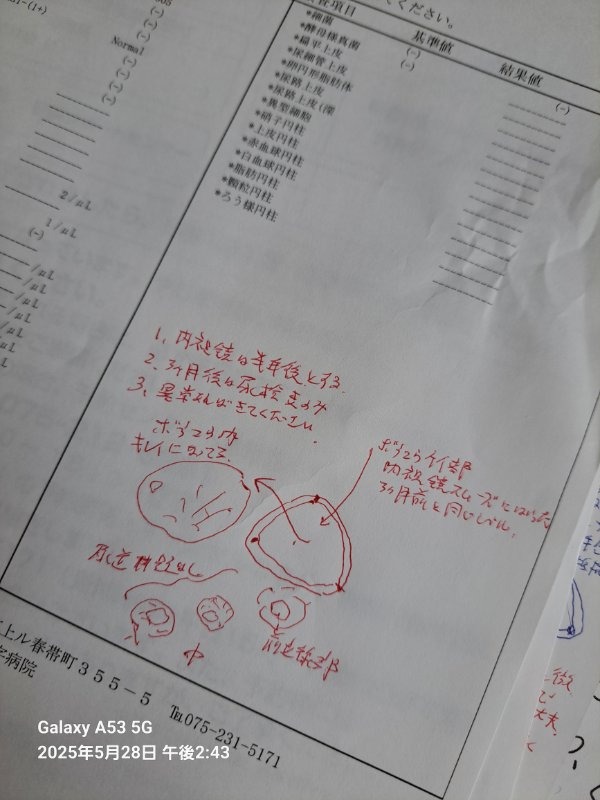 Normal
2/μL
1/μL
(-)
/μL
/μL
/μL
/μL
/μL
ください。
項目 基準値 結果値
*細菌 (-) (-)
*酵母様真菌 (-)
*扁平上皮
*尿細管上皮
*卵円形脂肪体
*尿路上皮
*尿路上皮(深
*異型細胞
*硝子円柱
*上皮円柱
*赤血球円柱
*白血球円柱
*脂肪円柱
*顆粒円柱
*ろう様円柱
1、内視鏡は半年後とする
2、3ヶ月後は尿検査のみ
3、異常あればきてください。
ボウコウ内
キレイになってる
ボウコウ
内視鏡スムーズに
3ヶ月前と同じレベル。
尿道
中
上ル春帯町355-5 ℡075-231-5171
病院
Galaxy A53 5G
2025年5月28日 午後2:43